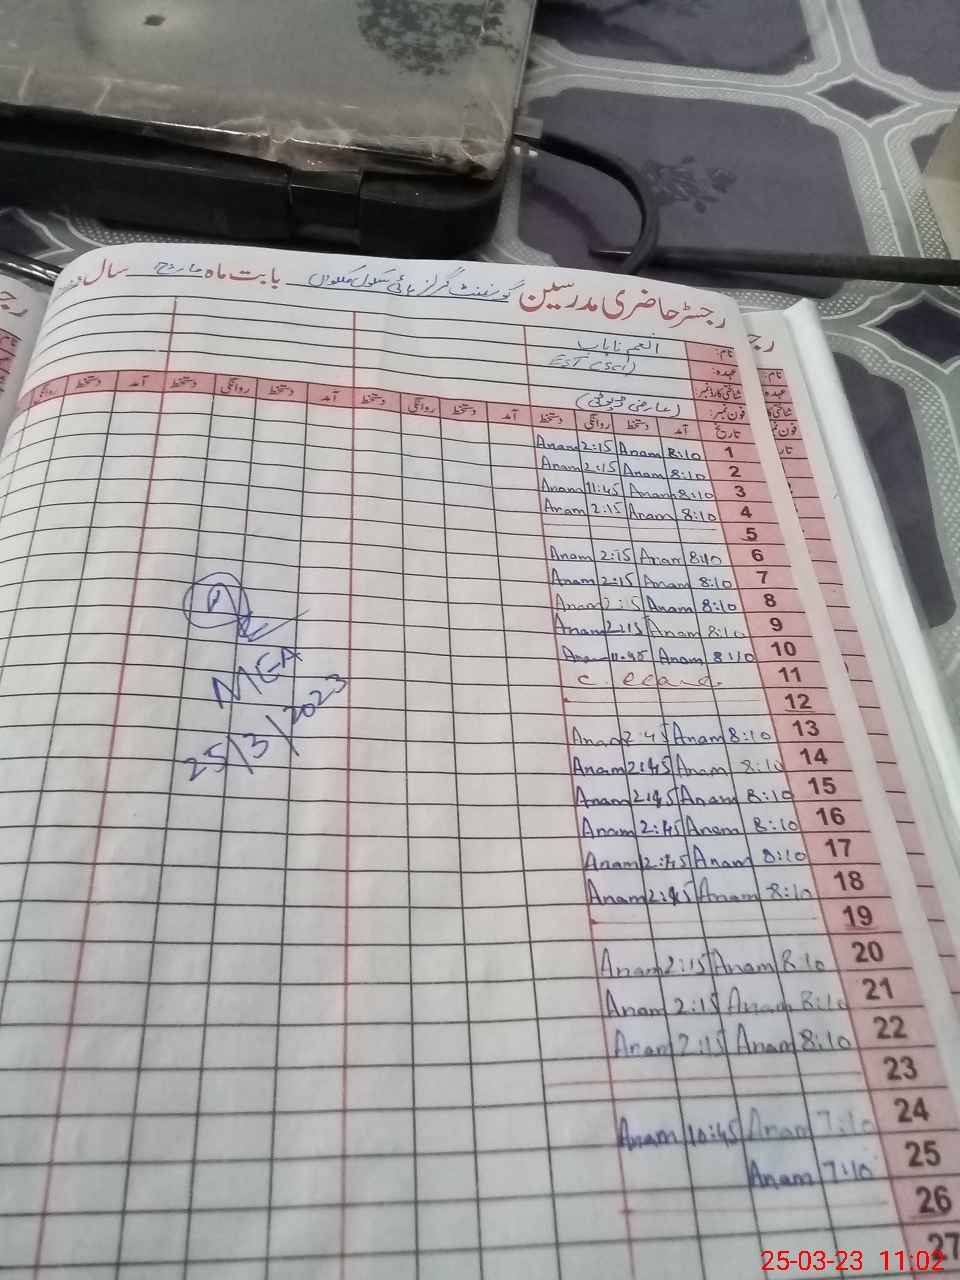 رجسٹر حاضری مدرسین گورنمنٹ گرلز ہائی سکول بابت ماہ مارچ سال
نام:
عہدہ: EST (Sci)
شناختی کارڈ نمبر:
فون نمبر: (عارضی ڈیوٹی)
تاریخ آمد دستخط روانگی دستخط آمد دستخط روانگی دستخط آمد دستخط روانگی دستخط آمد دستخط روانگی
1 8:10 Anam 2:15 Anam
2 8:10 Anam 2:15 Anam
3 8:10 Anam 11:45 Anam
4 8:10 Anam 2:15 Anam
5
6 8:10 Anam 2:15 Anam
7 8:10 Anam 2:15 Anam
8 8:10 Anam 2:15 Anam
9 8:10 Anam 2:15 Anam
10 8:10 Anam 11:45 Anam
11
12
13 8:10 Anam 2:45 Anam
14 8:10 Anam 2:45 Anam
15 8:10 Anam 2:45 Anam
16 8:10 Anam 2:45 Anam
17 8:10 Anam 2:45 Anam
18 8:10 Anam 2:45 Anam
19
20 8:10 Anam 2:15 Anam
21 8:10 Anam 2:15 Anam
22 8:10 Anam 2:15 Anam
23
24 7:10 Anam 10:45 Anam
25 7:10 Anam
26
27
MEA
25/3/2023
نام:
عہدہ
25-03-23 11:02